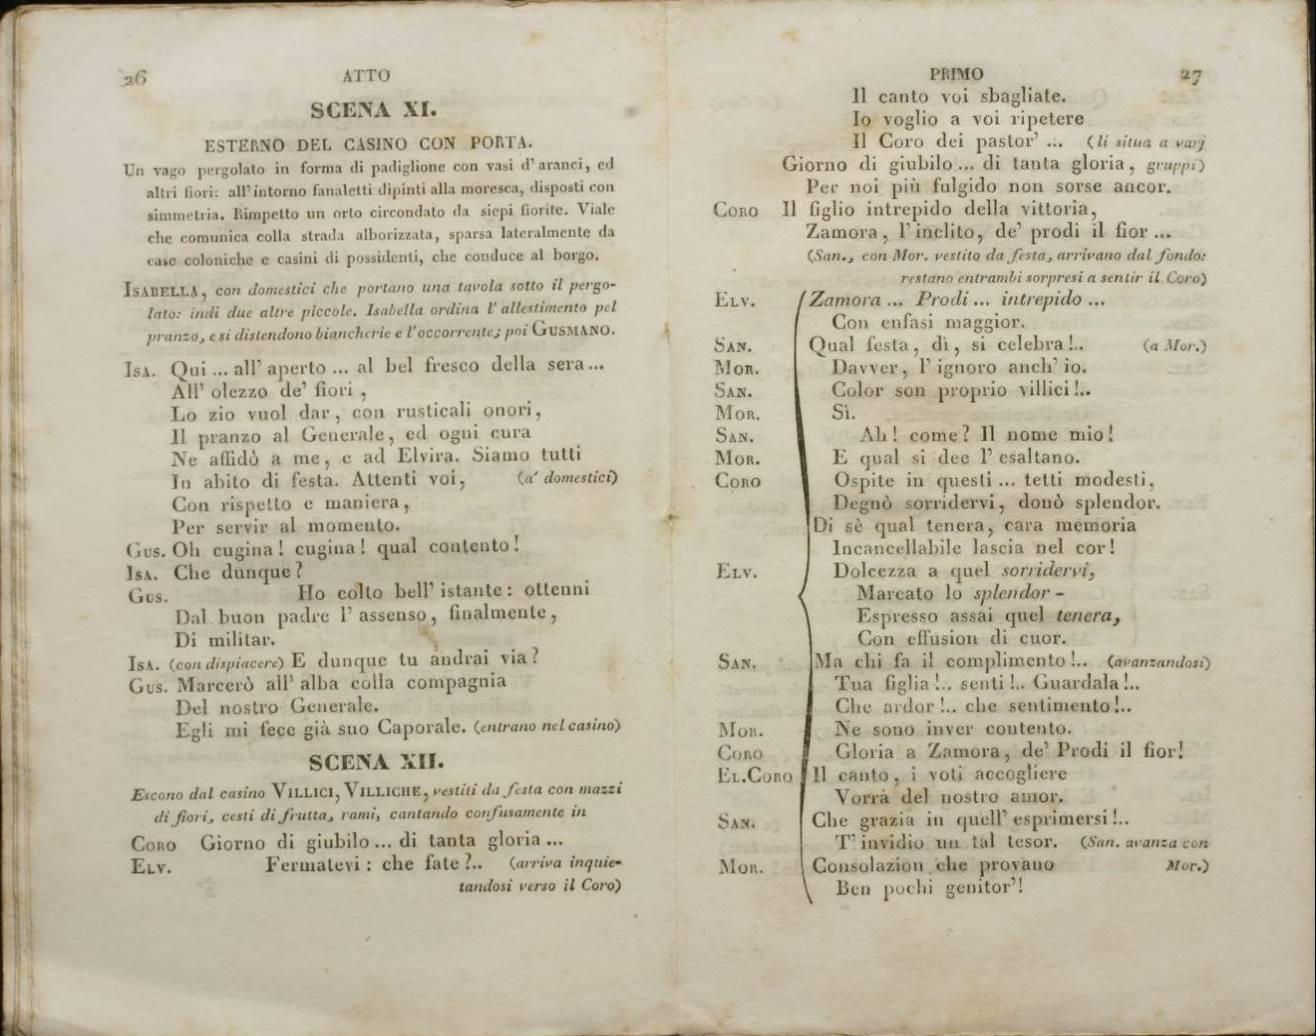 26 ATTO
SCENA XI.
ESTERNO DEL CASINO CON PORTA.
Un vago pergolato in forma di padiglione con vasi d'aranci, ed
altri fiori: all'intorno fanaletti dipinti alla moresca, disposti con
simmetria. Rimpetto un orto circondato da siepi fiorite. Viale
che comunica colla strada alborizzata, sparsa lateralmente da
case coloniche e casini di possidenti, che conduce al borgo.
ISABELLA, con domestici che portano una tavola sotto il pergo-
lato: indi due altre piccole. Isabella ordina l'allestimento pel
pranzo, e si distendono biancherie e l'occorrente; poi GUSMANO.
ISA. Qui ... all' aperto ... al bel fresco della sera...
All' olezzo de' fiori ,
Lo zio vuol dar, con rusticali onori,
Il pranzo al Generale, ed ogni cura
Ne affidò a me, e ad Elvira. Siamo tutti
In abito di festa. Attenti voi, (a' domestici)
Con rispetto e maniera,
Per servir al momento.
GUS. Oh cugina! cugina! qual contento!
ISA. Che dunque?
GUS. Ho colto bell' istante: ottenni
Dal buon padre l' assenso, finalmente,
Di militar.
ISA. (con dispiacere) E dunque tu andrai via?
GUS. Marcerò all' alba colla compagnia
Del nostro Generale.
Egli mi fece già suo Caporale. (entrano nel casino)
SCENA XII.
Escono dal casino VILLICI, VILLICHE, vestiti da festa con mazzi
di fiori, cesti di frutta, rami, cantando confusamente in
CORO Giorno di giubilo ... di tanta gloria ...
ELV. Fermatevi: che fate?.. (arriva inquie-
tandosi verso il Coro)
PRIMO 27
Il canto voi sbagliate.
Io voglio a voi ripetere
Il Coro dei pastor' ... (li situa a varj
Giorno di giubilo ... di tanta gloria, gruppi)
Per noi più fulgido non sorse ancor.
CORO Il figlio intrepido della vittoria,
Zamora, l'inclito, de' prodi il fior ...
(San., con Mor. vestito da festa, arrivano dal fondo:
restano entrambi sorpresi a sentir il Coro)
ELV. Zamora ... Prodi ... intrepido ...
Con enfasi maggior.
SAN. Qual festa, dì, si celebra!.. (a Mor.)
MOR. Davver, l' ignoro anch' io.
SAN. Color son proprio villici!..
MOR. Sì.
SAN. Ah! come? Il nome mio!
MOR. E qual si dee l' esaltano.
CORO Ospite in questi ... tetti modesti,
Degnò sorridervi, donò splendor.
Di sè qual tenera, cara memoria
Incancellabile lascia nel cor!
ELV. Dolcezza a quel sorridervi,
Marcato lo splendor -
Espresso assai quel tenera,
Con effusion di cuor.
SAN. Ma chi fa il complimento!.. (avanzandosi)
Tua figlia!.. senti!.. Guardala!..
Che ardor!.. che sentimento!..
MOR. Ne sono inver contento.
CORO Gloria a Zamora, de' Prodi il fior!
EL. CORO Il canto, i voti accogliere
Vorrà del nostro amor.
SAN. Che grazia in quell' esprimersi!..
T' invidio un tal tesor. (San. avanza con
MOR. Consolazion che provano Mor.)
Ben pochi genitor'!